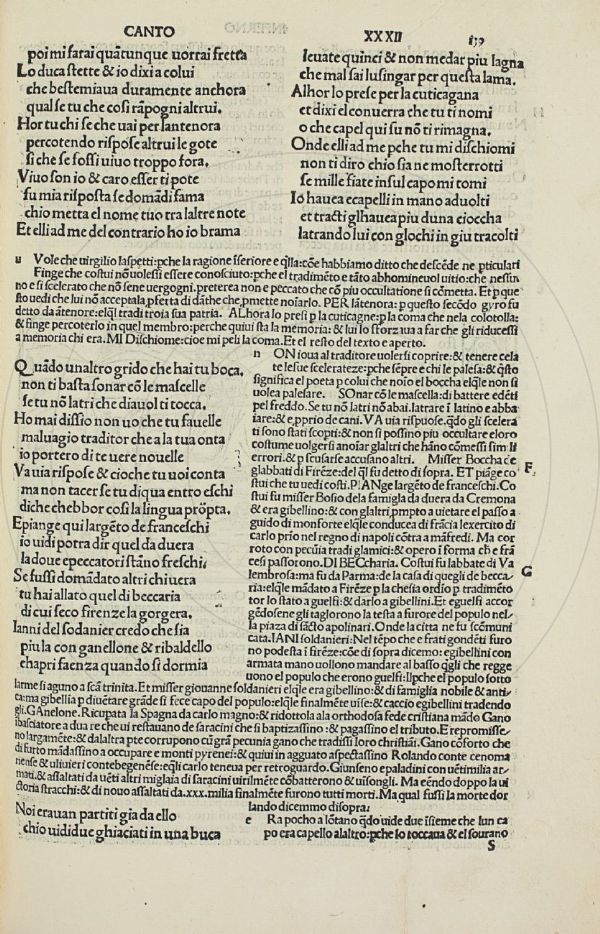 CANTO XXXII 139
poi mi farai quãtunque uorrai fretta
Lo duca stette & io dixi a colui
che bestemiaua duramente anchora
qual se tu che cosi rãpogni altrui.
Hor tu chi se che uai per lantenora
percotendo rispose altrui le gote
si che se fossi uiuo troppo fora.
Viuo son io & caro esser ti pote
fu mia risposta se domãdi fama
chio metta el nome tuo tra laltre note
Et elli ad me del contrario ho io brama
leuate quinci & non medar piu lagna
che mal sai lusingar per questa lama.
Alhor lo prese per la cuticagna
et dixi el conuerra che tu ti nomi
o che capel qui su nõ ti rimagna.
Onde elli ad me pche tu mi dischiomi
non ti diro chio sia ne mosterrotti
se mille fiate in sul capo mi tomi
Io hauea ecapelli in mano aduolti
et tracti glhauea piu duna cioccha
latrando lui con glochi in giu tracolti
u Vole che uirgilio laspetti: pche la ragione ĩferiore e q̃lla: cõe habbiamo ditto che descẽde ne pticulari
Finge che costui nõ uolessi essere conosciuto: pche el tradimẽto e tãto abhomineuol uitio: che nessun
no e si scelerato che nõ sene uergogni. preterea non e peccato che cõ piu occultatione si cõmetta. Et p que
sto uedi che lui nõ acceptala pferta di dãthe che pmette noĩarlo. PER lãtenora: p questo secõdo gyro fu
detto da ãtenore: elq̃l tradi troia sua patria. ALhora lo presi p la cuticagna: p la coma che nela colotolla:
& finge percoterlo in quel membro: perche quiui sta la memoria: & lui lo sforzaua a far che gli riducessi
a memoria chi era. MI Dischiome: cioe mi peli la coma. Et el resto del texto e aperto.
Quãdo un altro grido che hai tu boca,
non ti basta sonar cõ le mascelle
se tu nõ latri che diauol ti tocca.
Ho mai dissio non uo che tu fauelle
maluagio traditor che a la tua onta
io portero di te uere nouelle
Va uia rispose & cio che tu uoi conta
ma non tacer se tu di qua entro eschi
di che chebbor cosi la lingua prõpta.
E piange qui largẽto de franceschi
io uidi potra dir quel da duera
la doue e peccatori stãno freschi.
Se fussi domãdato altri chi uera
tu hai allato quel di beccaria
di cui seco firenze la gorgera.
Ianni del sodanier credo che sia
piu la con ganellone & ribaldello
chapri faenza quando si dormia
n ON ioua al traditore uolersi coprire: & tenere cela
te le sue scelerateze: pche sẽpre e chi le palesa: & q̃sto
significa el poeta p colui che noĩo el boccha elq̃le non si
uolea palesare. SOnar cõ le mascella: di battere edẽti
pel freddo. Se tu nõ latri nõ abai. latrare ĩ latino e abba
iare: & e pprio de cani. VA uia rispuose. q̃do gli scelera
ti sono stati scopti: & non si possino piu occultare eloro
costume uolgersi anoĩar glaltri che hãno cõmessi simili
errori. & p scusarse accusano altri. Misser Boccha de
glabbati di Firẽze: del q̃l fu detto di sopra. ET piãge co
stui che tu uedi costi. PIANge largẽto de franceschi. Co
stui fu misser Bosio dela famigla da duera da Cremona
& era gibellino: & con glaltri pmpto a uietare el passo a
guido di monforte elq̃le conducea di frãcia lexercito di
carlo prio nel regno di napoli cõtra a mãfredi. Ma cor
roto con pecũia tradi glamici: & opero ĩ forma che e frã
cesi passorono. DI BECcharia. Costui fu labbate di Va
lembrosa: ma fu da Parma: de la casa di quegli de becca/
ria: elq̃le mãdato a Firẽze p la chesia ordio p tradimẽto
tor lo stato a guelfi: & darlo a gibellini. Et eguelfi accor
gẽdosene gli taglorono la testa a furore del popolo nel/
la piaza di sãcto apolinari. Onde la citta ne fu scõmuni
cata. IANI soldanieri: Nel tẽpo che e frati gondẽti furo
no podesta ĩ firẽze: cõe di sopra dicemo: e gibellini con
armata mano uollono mandare al basso q̃gli che regge
uono el popolo che erono guelfi: Ilpche el popolo sotto
larme si aguno a scã trinita. Et misser giouanne soldanieri elq̃le era gibellino: & di famiglia nobile & anti/
ca: ma gibellia p diuẽtare grãde si fece capo del popolo: elq̃le finalmẽte uise: & caccio egibellini tradendo
gli. GAnelone. Ricupata la Spagna da carlo magno: & ridottola ala orthodosa fede cristiana mãdo Gano
ĩbasciatore a dua re che ui restauano de saracini che si baptizassino: & pagassino el tributo. E repromisse/
no largamẽte: & dalaltra pte corrupono cũ grã pecunia gano che tradissi loro christiãi. Gano cõforto che
di furto mãdassino a occupare e monti pyrenei: & quiui in agguato aspectassino Rolando conte cenoma
nense & uliuieri contebegenẽse: eq̃li carlo tenea per retroguardo. Giunseno epaladini con uẽtimilia ar/
mati. & assaltati da uẽti altri miglaia di saracini uirilmẽte cõbatterono & uissongli. Ma eẽndo doppo la ui
ctoria stracchi: & di nouo assaltati da .xxx. milia finalmẽte furono tutti morti. Ma qual fussi la morte dor
lando dicemmo disopra:
Noi erauan partiti gia da ello
chio uidi due ghiaciati in una buca
e Ra pocho a lõtano q̃do uide due ĩsieme che lun ca
po era capello alaltro: pche lo toccaua & el sourano
F
G
S